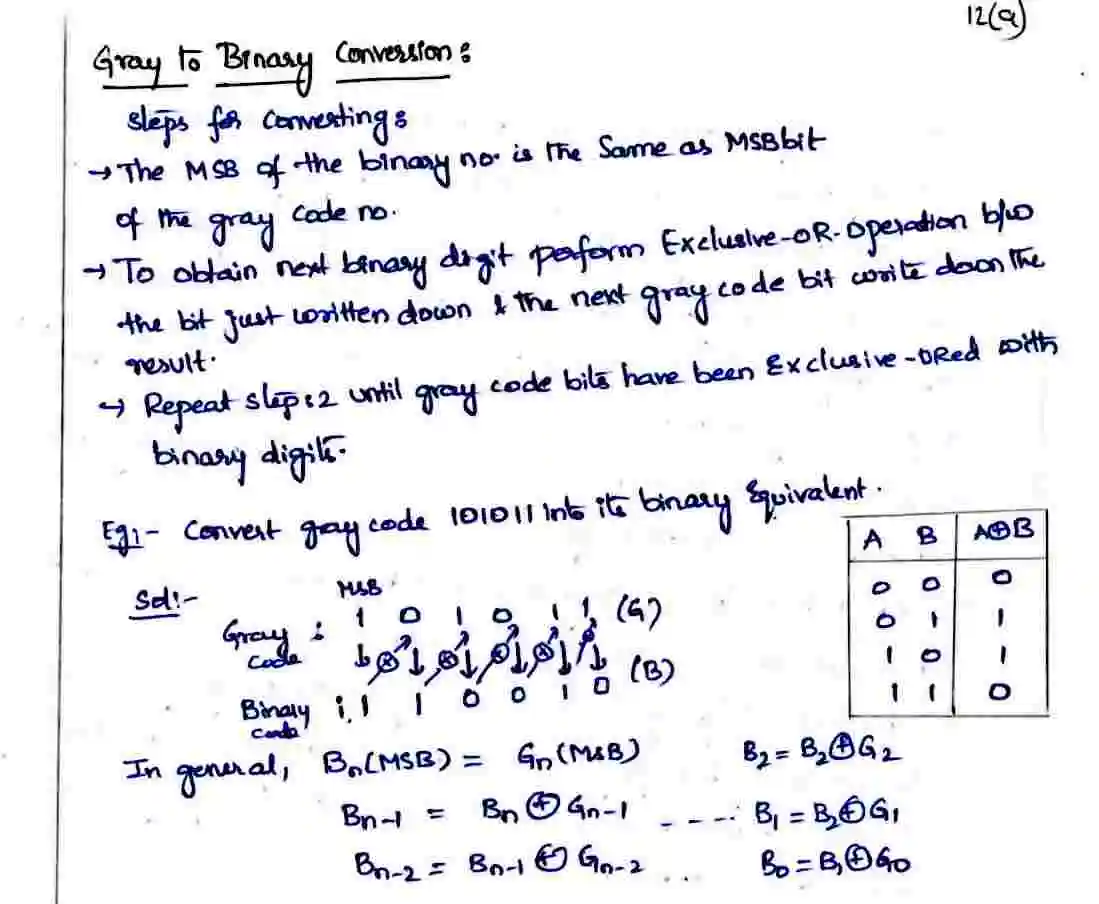 12(a)
Gray to Binary Conversion:
Steps for converting:
→ The MSB of the binary no. is the Same as MSB bit
of the gray code no.
→ To obtain next binary digit perform Exclusive-OR-Operation b/w
the bit just written down & the next gray code bit write down the
result.
→ Repeat step:2 until gray code bits have been Exclusive-ORed with
binary digits.
Eg:- Convert gray code 101011 into its binary Equivalent.
A B A⊕B
0 0 0
0 1 1
1 0 1
1 1 0
Sol:-
MSB
Gray code : 1 0 1 0 1 1 (G)
Binary code : 1 1 0 0 1 0 (B)
In general, Bn(MSB) = Gn(MSB) B2 = B2⊕G2
Bn-1 = Bn ⊕ Gn-1 ---- B1 = B2⊕G1
Bn-2 = Bn-1 ⊕ Gn-2 .. B0 = B1⊕G0